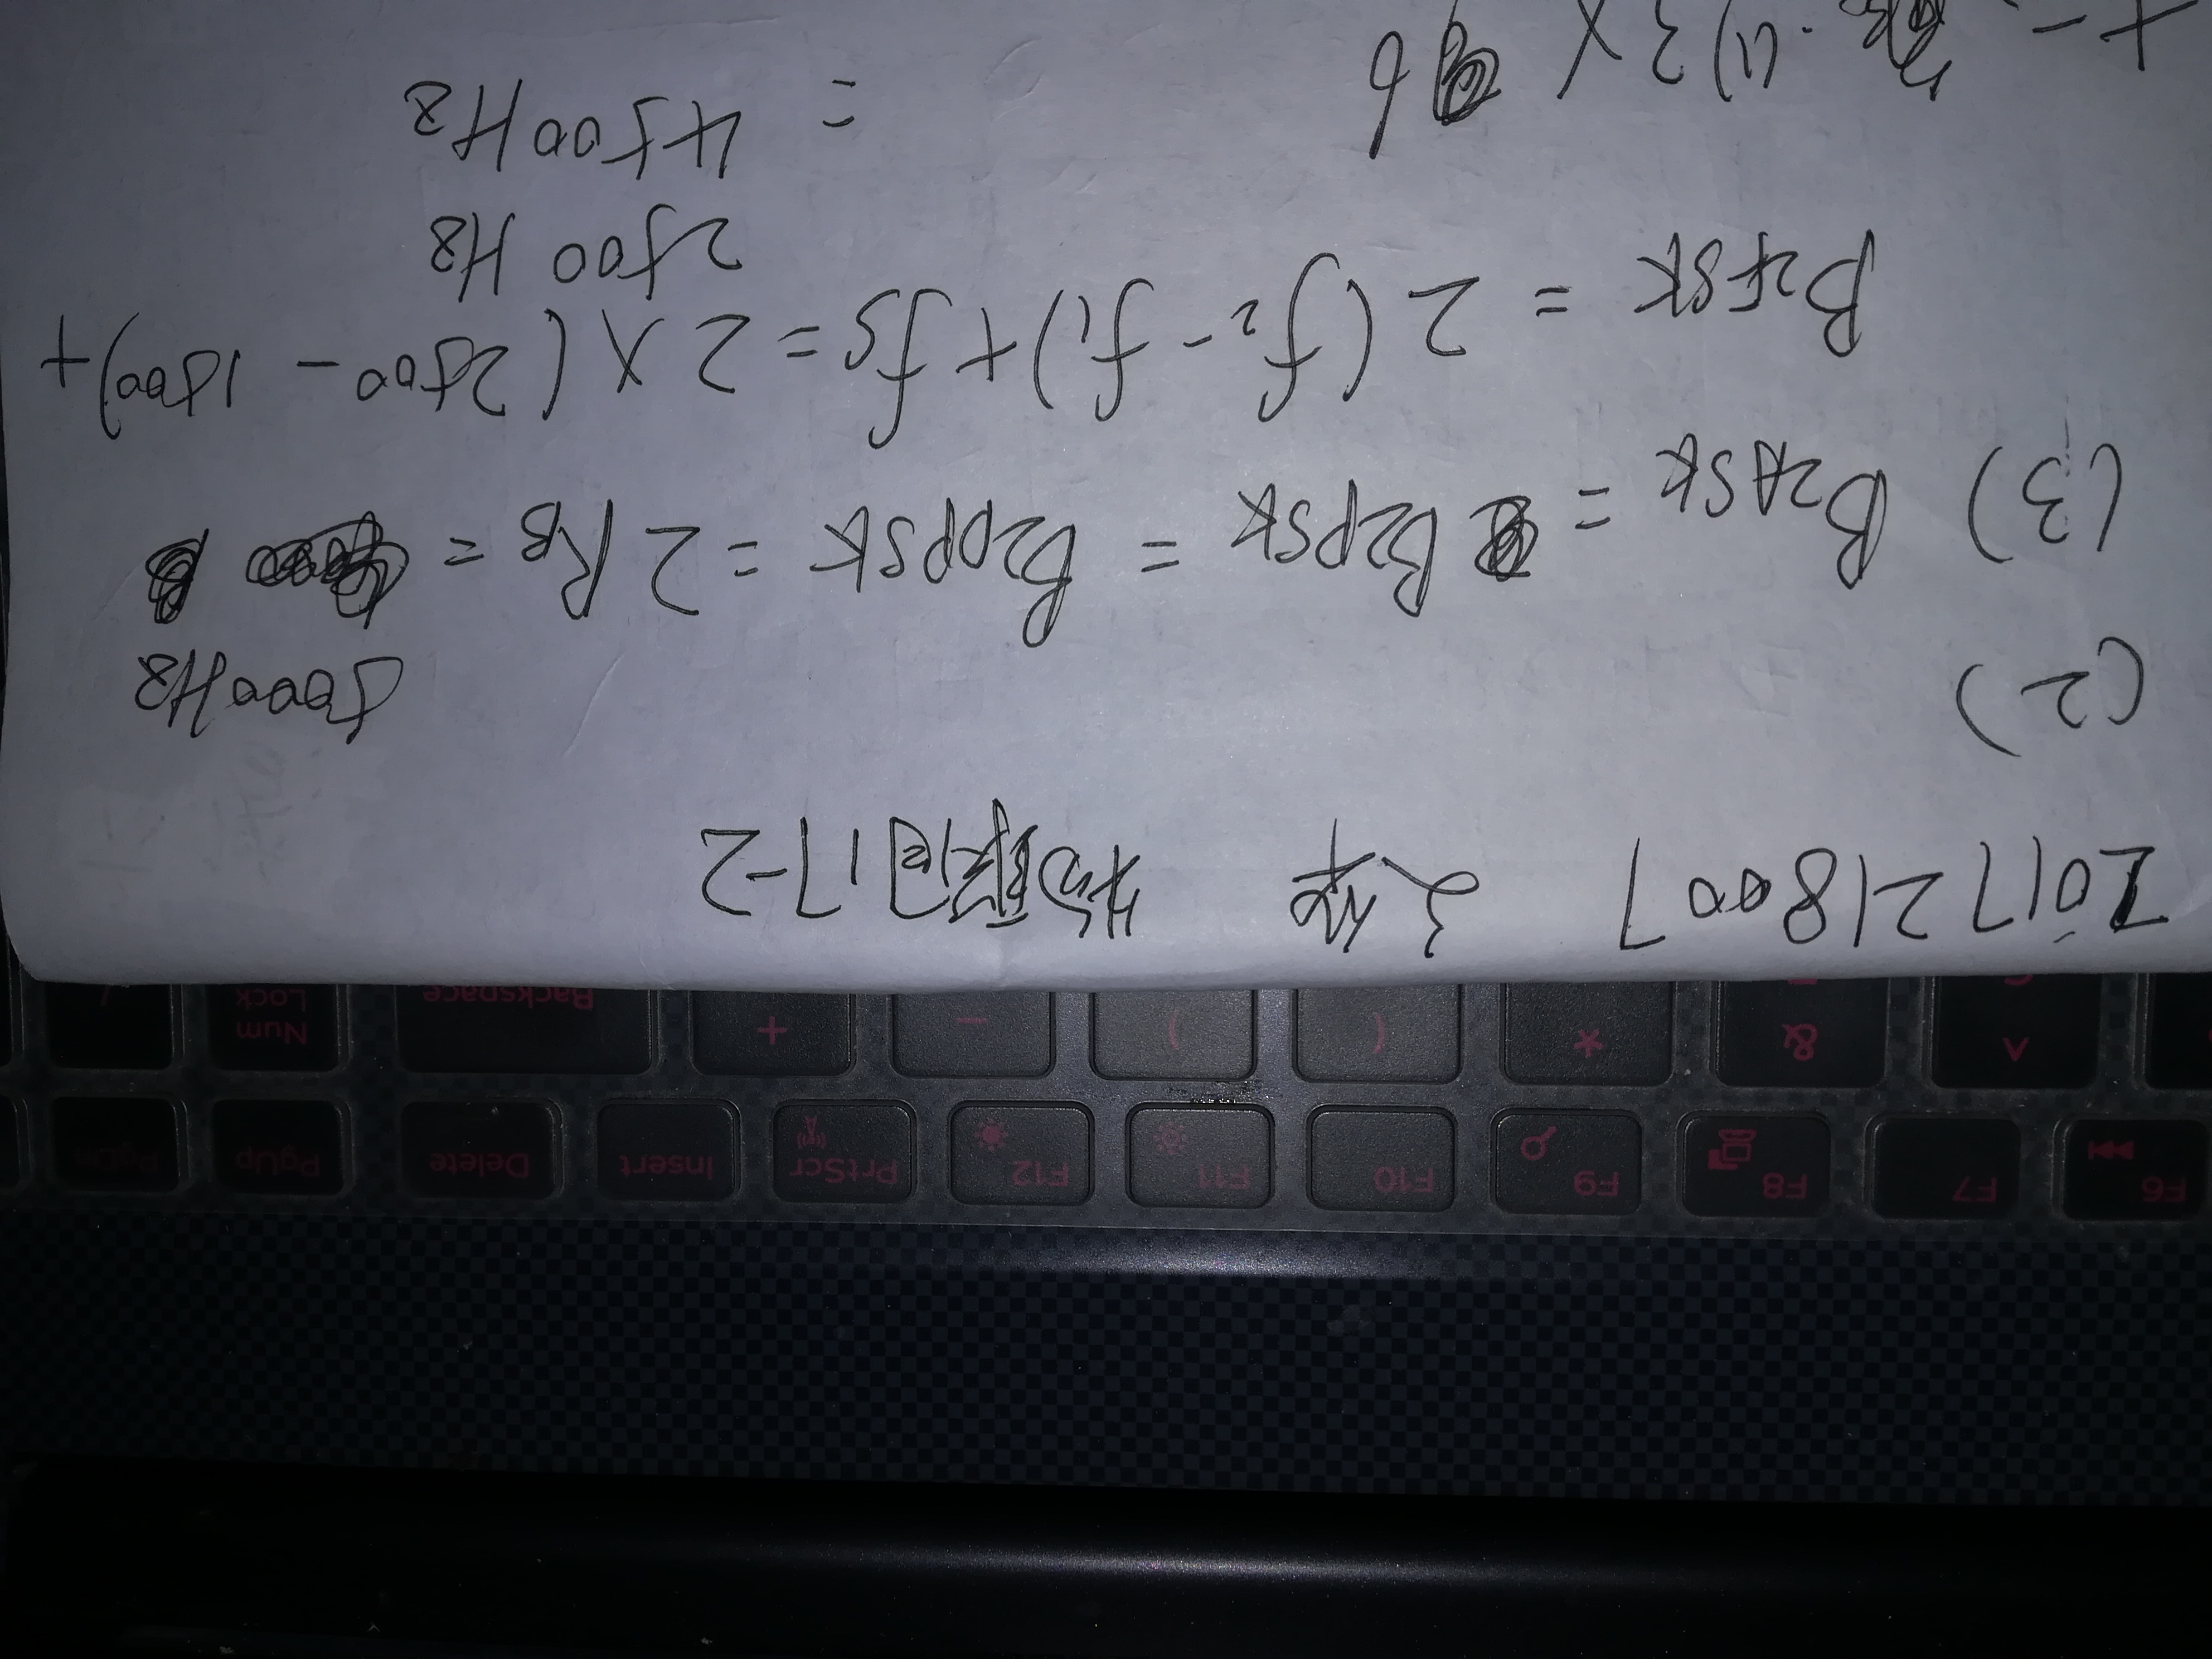 F6 F7 F8 F9 F10 F11 F12 PrtScr Insert Delete PgUp PgDn
^ & * ( ) — + Backspace Num Lock /
2017218007 文华 物联网17-2
(2)
5000Hz
(3) B2ASK = B2PSK = B2DPSK = 2 RB =
B2FSK = 2(f2-f1)+fs = 2×(2500-1500)+
2500 Hz
= 4500Hz
十一、解.(1) 3× 6